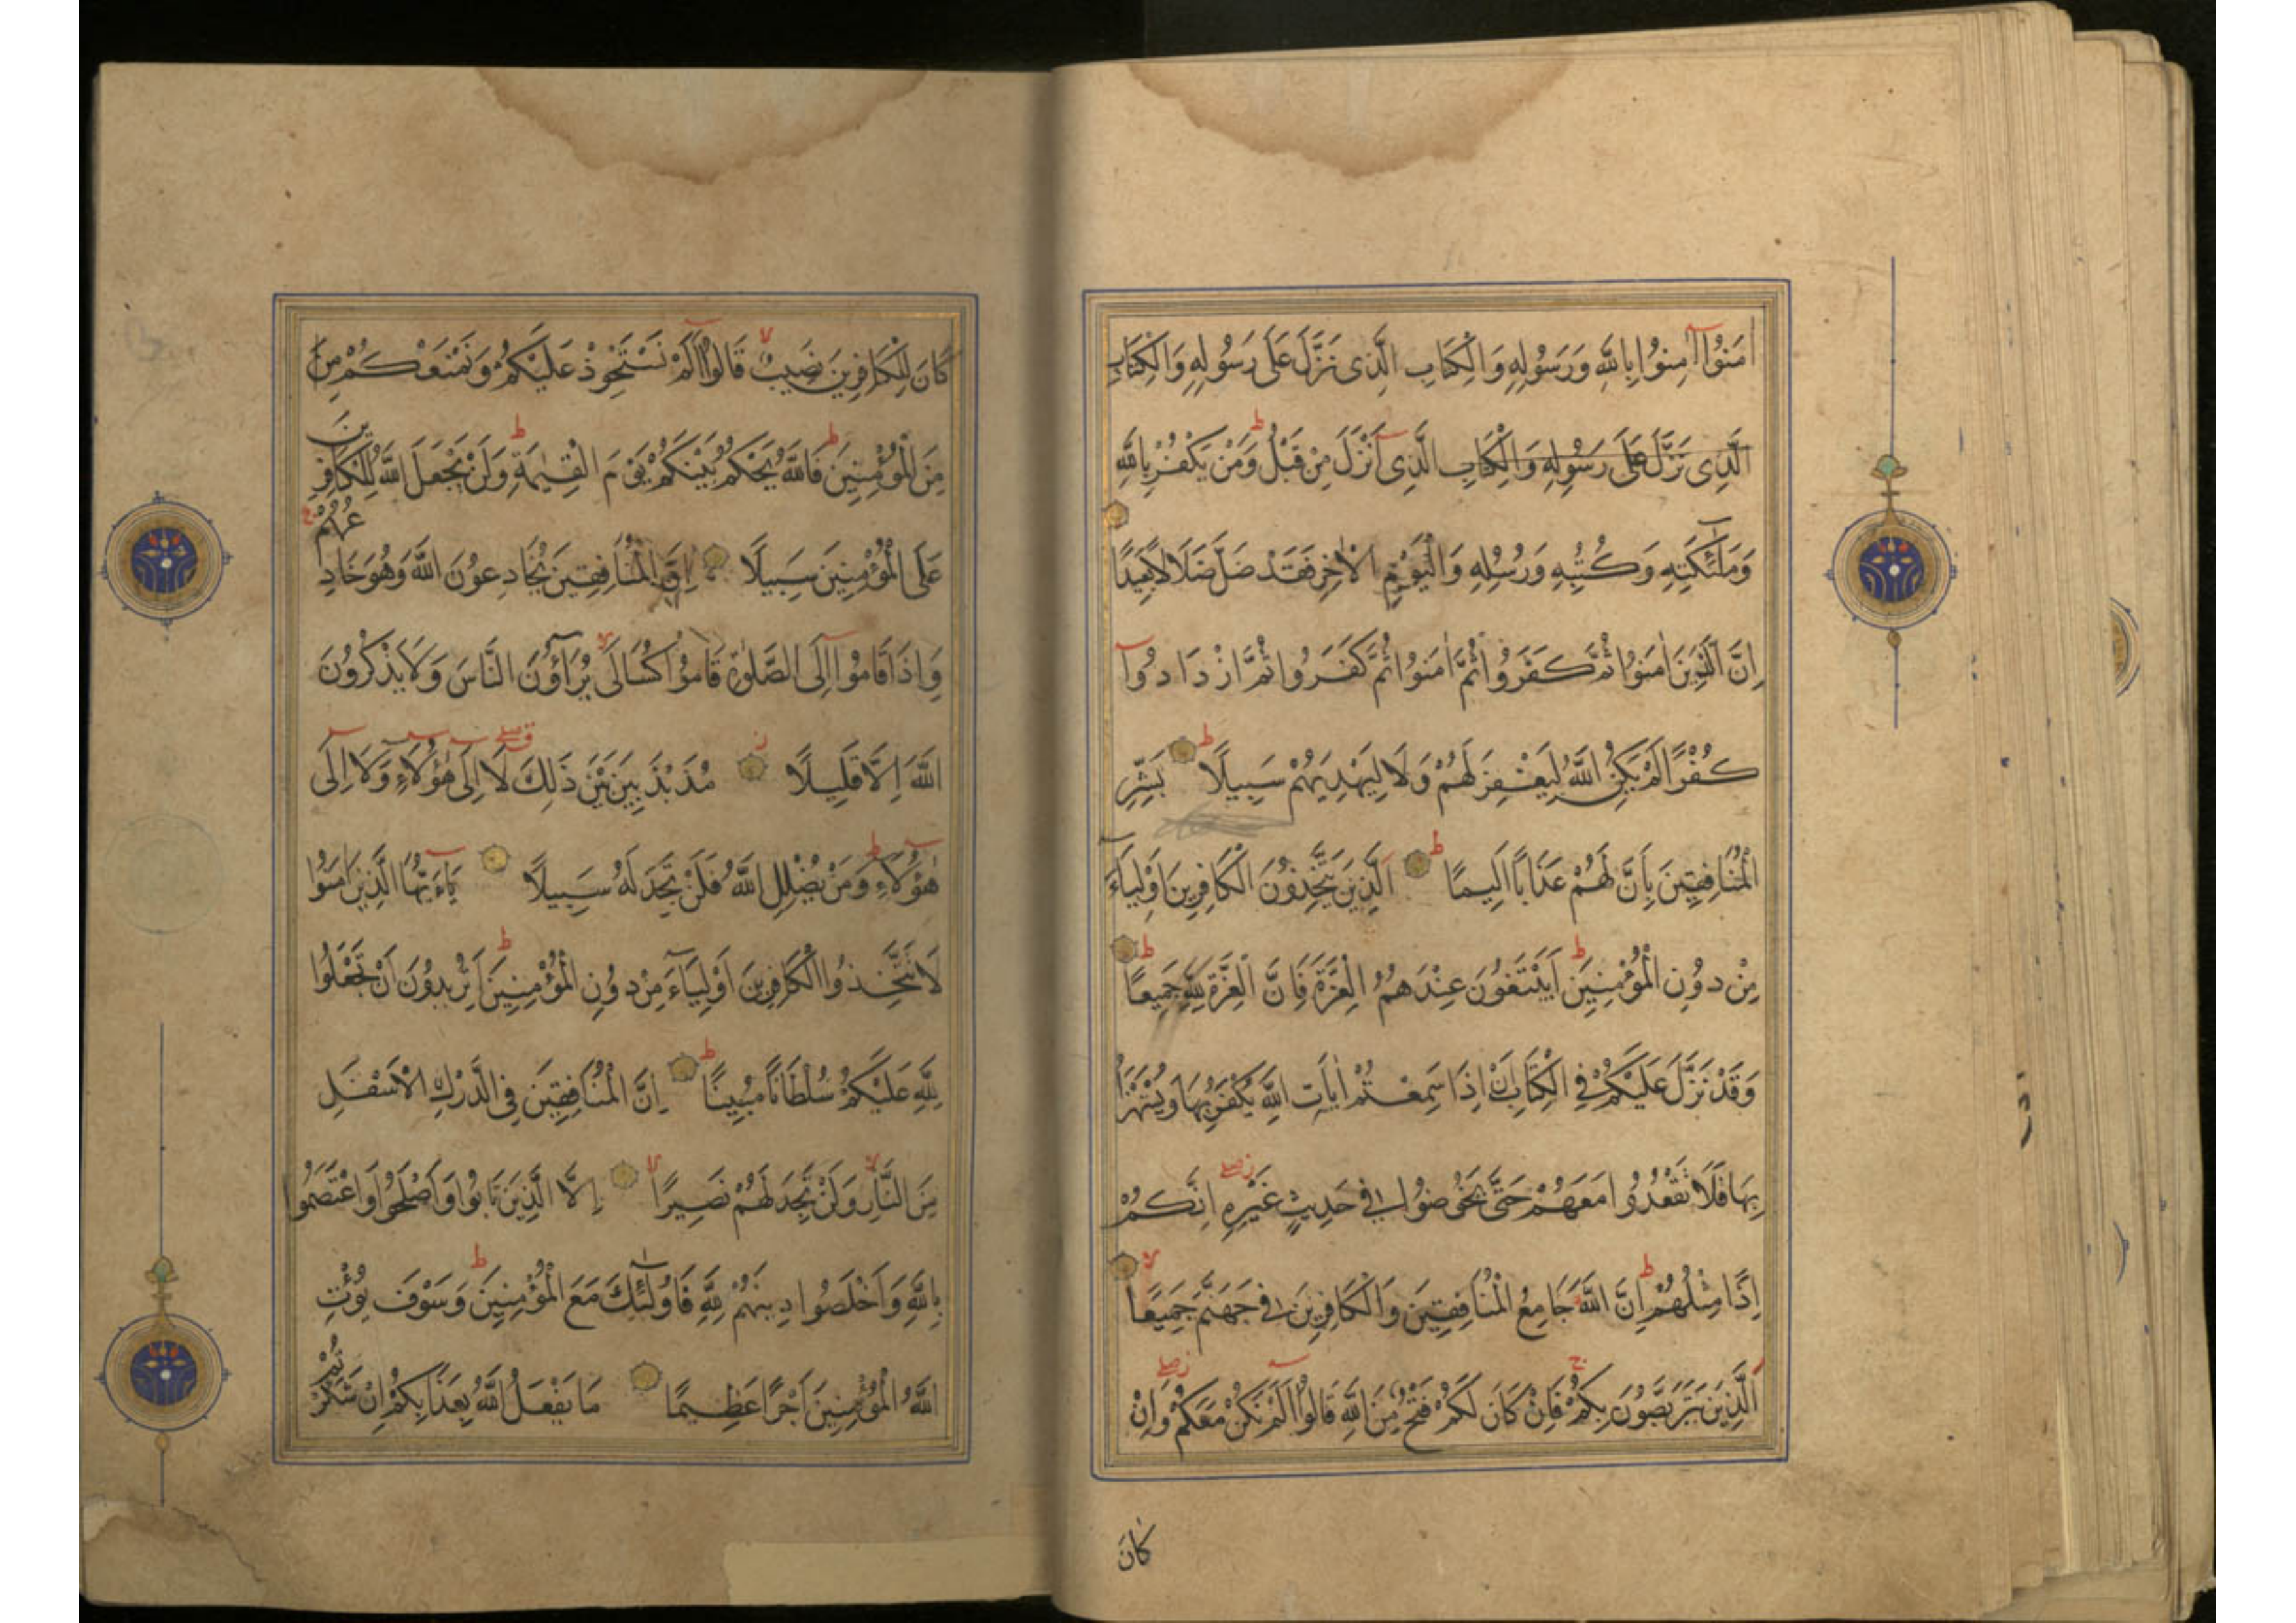 اٰمَنُوا آمِنُوا بِاللّٰهِ وَرَسُولِهِ وَالْكِتَابِ الَّذِى نَزَّلَ عَلَى رَسُولِهِ وَالْكِتَابِ
الَّذِى نَزَّلَ عَلَى رَسُولِهِ وَالْكِتَابِ الَّذِى اَنْزَلَ مِنْ قَبْلُ وَمَنْ يَكْفُرْ بِاللّٰهِ
وَمَلٰئِكَتِهِ وَكُتُبِهِ وَرُسُلِهِ وَالْيَوْمِ الْاٰخِرِ فَقَدْ ضَلَّ ضَلَالًا بَعِيدًا
اِنَّ الَّذِينَ اٰمَنُوا ثُمَّ كَفَرُوا ثُمَّ اٰمَنُوا ثُمَّ كَفَرُوا ثُمَّ ازْدَادُوا
كُفْرًا لَمْ يَكُنِ اللّٰهُ لِيَغْفِرَ لَهُمْ وَلَا لِيَهْدِيَهُمْ سَبِيلًا بَشِّرِ
الْمُنَافِقِينَ بِاَنَّ لَهُمْ عَذَابًا اَلِيمًا اَلَّذِينَ يَتَّخِذُونَ الْكَافِرِينَ اَوْلِيَاءَ
مِنْ دُونِ الْمُؤْمِنِينَ اَيَبْتَغُونَ عِنْدَهُمُ الْعِزَّةَ فَاِنَّ الْعِزَّةَ لِلّٰهِ جَمِيعًا
وَقَدْ نَزَّلَ عَلَيْكُمْ فِى الْكِتَابِ اَنْ اِذَا سَمِعْتُمْ اٰيَاتِ اللّٰهِ يُكْفَرُ بِهَا وَيُسْتَهْزَاُ
بِهَا فَلَا تَقْعُدُوا مَعَهُمْ حَتَّى يَخُوضُوا فِى حَدِيثٍ غَيْرِهِ اِنَّكُمْ
اِذًا مِثْلُهُمْ اِنَّ اللّٰهَ جَامِعُ الْمُنَافِقِينَ وَالْكَافِرِينَ فِى جَهَنَّمَ جَمِيعًا
اَلَّذِينَ يَتَرَبَّصُونَ بِكُمْ فَاِنْ كَانَ لَكُمْ فَتْحٌ مِنَ اللّٰهِ قَالُوا اَلَمْ نَكُنْ مَعَكُمْ وَاِنْ
كَانَ
كَانَ لِلْكَافِرِينَ نَصِيبٌ قَالُوا اَلَمْ نَسْتَحْوِذْ عَلَيْكُمْ وَنَمْنَعْكُمْ مِنَ
مِنَ الْمُؤْمِنِينَ فَاللّٰهُ يَحْكُمُ بَيْنَكُمْ يَوْمَ الْقِيٰمَةِ وَلَنْ يَجْعَلَ اللّٰهُ لِلْكَافِرِينَ
عَلَى الْمُؤْمِنِينَ سَبِيلًا اِنَّ الْمُنَافِقِينَ يُخَادِعُونَ اللّٰهَ وَهُوَ خَادِعُهُمْ
وَاِذَا قَامُوا اِلَى الصَّلٰوةِ قَامُوا كُسَالَى يُرَاؤُنَ النَّاسَ وَلَا يَذْكُرُونَ
اللّٰهَ اِلَّا قَلِيلًا مُذَبْذَبِينَ بَيْنَ ذَلِكَ لَا اِلَى هٰؤُلَاءِ وَلَا اِلَى
هٰؤُلَاءِ وَمَنْ يُضْلِلِ اللّٰهُ فَلَنْ تَجِدَ لَهُ سَبِيلًا يَاءَيُّهَا الَّذِينَ اٰمَنُوا
لَا تَتَّخِذُوا الْكَافِرِينَ اَوْلِيَاءَ مِنْ دُونِ الْمُؤْمِنِينَ اَتُرِيدُونَ اَنْ تَجْعَلُوا
لِلّٰهِ عَلَيْكُمْ سُلْطَانًا مُبِينًا اِنَّ الْمُنَافِقِينَ فِى الدَّرْكِ الْاَسْفَلِ
مِنَ النَّارِ وَلَنْ تَجِدَ لَهُمْ نَصِيرًا اِلَّا الَّذِينَ تَابُوا وَاَصْلَحُوا وَاعْتَصَمُوا
بِاللّٰهِ وَاَخْلَصُوا دِينَهُمْ لِلّٰهِ فَاُولٰئِكَ مَعَ الْمُؤْمِنِينَ وَسَوْفَ يُؤْتِ
اللّٰهُ الْمُؤْمِنِينَ اَجْرًا عَظِيمًا مَا يَفْعَلُ اللّٰهُ بِعَذَابِكُمْ اِنْ شَكَرْتُمْ